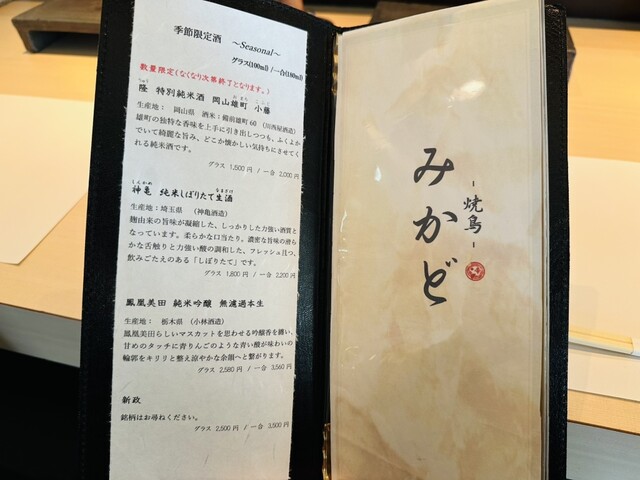 季節限定酒 ～Seasonal～
グラス(100ml) / 一合(180ml)
数量限定(なくなり次第終了となります。)
隆 特別純米酒 岡山雄町 小藤
生産地： 岡山県 酒米：備前雄町60 (川西屋酒造)
雄町の独特な香味を上手に引き出しつつも、ふくよか
でいて綺麗な旨み、どこか懐かしい気持ちにさせてく
れる純米酒です。
グラス 1,500 円 / 一合 2,000 円
しんかめ なまざけ
神亀 純米しぼりたて生酒
生産地：埼玉県 (神亀酒造)
麹由来の旨味が凝縮した、しっかりした力強い酒質と
なっています。柔らかな口当たり。濃密な旨味の滑ら
かな舌触りと力強い酸の調和した、フレッシュ且つ、
飲みごたえのある「しぼりたて」です。
グラス 1,800 円 / 一合 3,200 円
鳳凰美田 純米吟醸 無濾過本生
生産地： 栃木県 (小林酒造)
鳳凰美田らしいマスカットを思わせる吟醸香を纏い、
甘めのタッチに青りんごのような青い酸が味わいの
輪郭をキリリと整え涼やかな余韻へと繋がります。
グラス 2,580 円 / 一合 3,560 円
新政
銘柄はお尋ねください。
グラス 2,500 円 / 一合 3,500 円
-焼鳥-
みかど